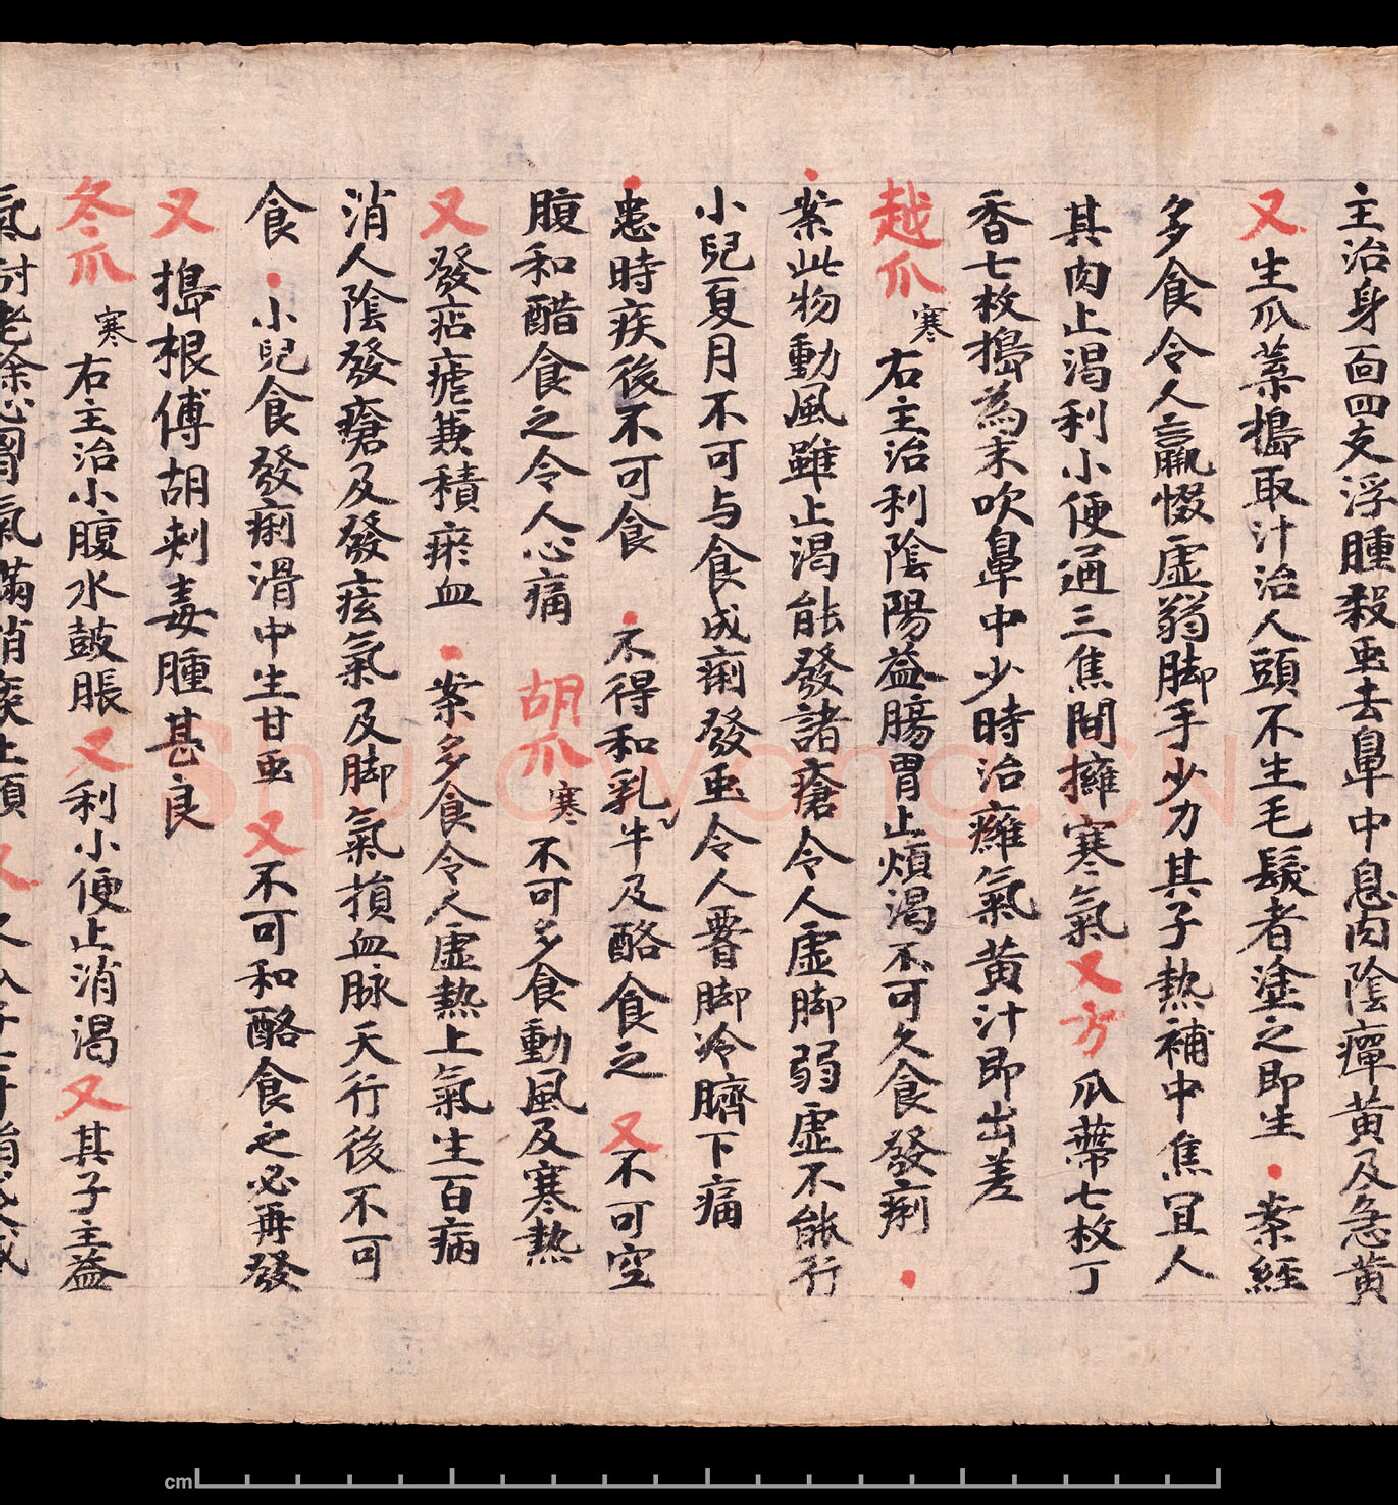 主治身面四支浮腫殺虫去鼻中息肉陰癉黄及急黄
又生瓜葉搗取汁治人頭不生毛髮者塗之即生・案經
多食令人羸惙虛弱脚手少力其子熱補中焦宜人
其肉止渴利小便通三焦間擁寒氣又方瓜蔕七枚丁
香七枚搗為末吹鼻中少時治癰氣黄汁即出差
越瓜寒右主治利陰陽益腸胃止煩渴不可久食發痢・
・案此物動風雖止渴能發諸瘡令人虛脚弱虛不能行
小兒夏月不可与食成痢發虫令人𦝫脚冷臍下痛
・患時疾後不可食・不得和乳牛及酪食之又不可空
腹和醋食之令人心痛胡瓜寒不可多食動風及寒熱
又發痁瘧兼積瘀血・案多食令人虛熱上氣生百病
消人陰發瘡及發痃氣及脚氣損血脉天行後不可
食・小兒食發痢滑中生甘虫又不可和酪食之必再發
又搗根傅胡刺毒腫甚良
冬瓜寒右主治小腹水鼓脹又利小便止消渴又其子主益
氣耐老除心胷氣滿消痰止煩又